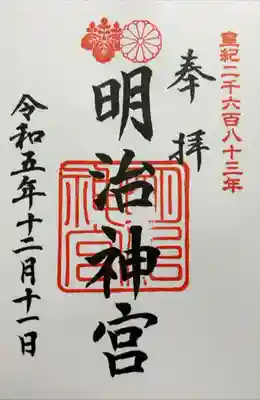 皇紀二千六百八十三年
奉拝
明治神宮
明治神宮
令和五年十二月十一日